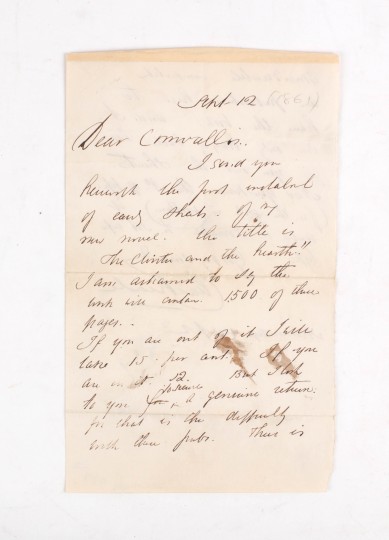 Sept 12
Dear Cornwallis.
I send you
herewith the first instalmt
of early sheets. of my
new novel. the title is
"The Cloister and the hearth"
I am ashamed to say the
work will contain 1500 of these
pages..
If you are out of it I will
take 15. per cent. If you
are in it 12 But I look
to you for a genuine return:
for that is the difficulty
with these pubs. There is